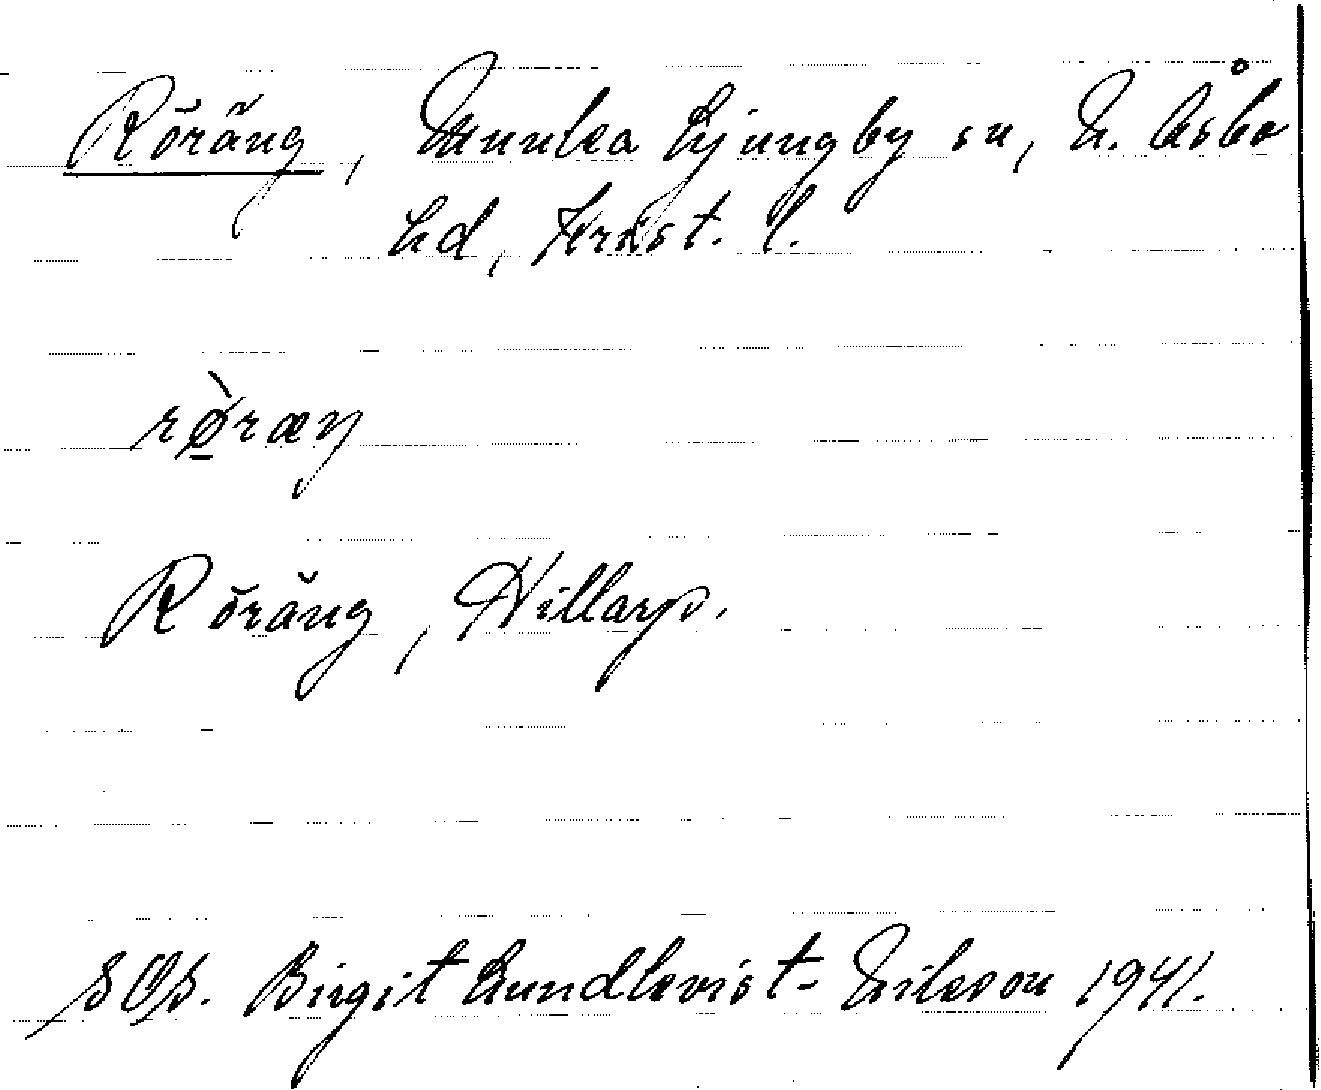 Röräng, Munka Ljungby sn, N. Åsbo
hd, Krist. l.
rø̀ræŋ
Röräng, Hillarp.
SOS. Birgit Lundkvist-Nilsson 1941.